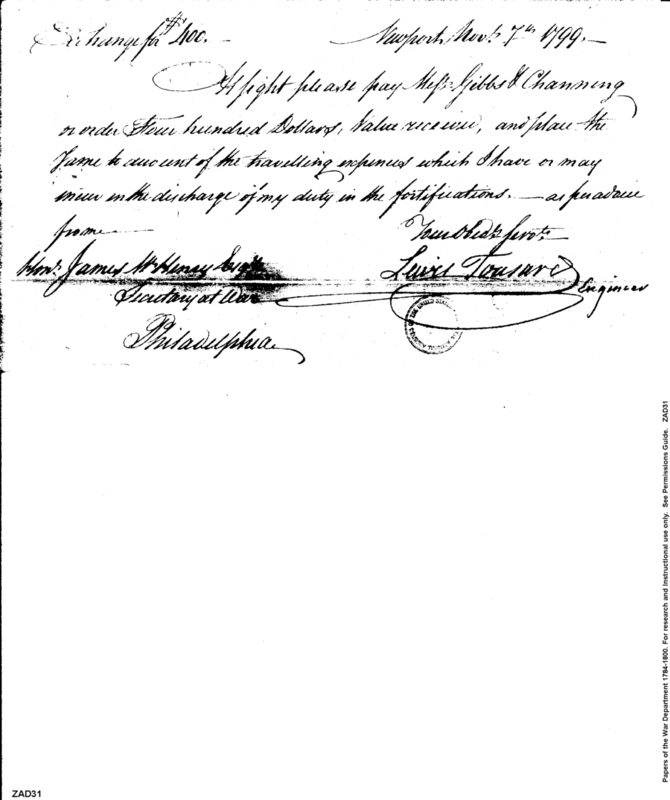 Exchange for $400.— Newport Novr. 7th 1799.—
At sight please pay Messrs Gibbs & Channing
or order Four hundred Dollars, Value received, and place the
Same to account of the travelling expences which I have or may
incur in the discharge of my duty in the fortifications. — as per advice
from — Your Obedt. Servt.
Honl. James McHenry Esqr. Lewis Tousard
Secretary at War Engineer
Philadelphia
ZAD31
Papers of the War Department 1784-1800. For research and Instructional use only. See Permissions Guide. ZAD31